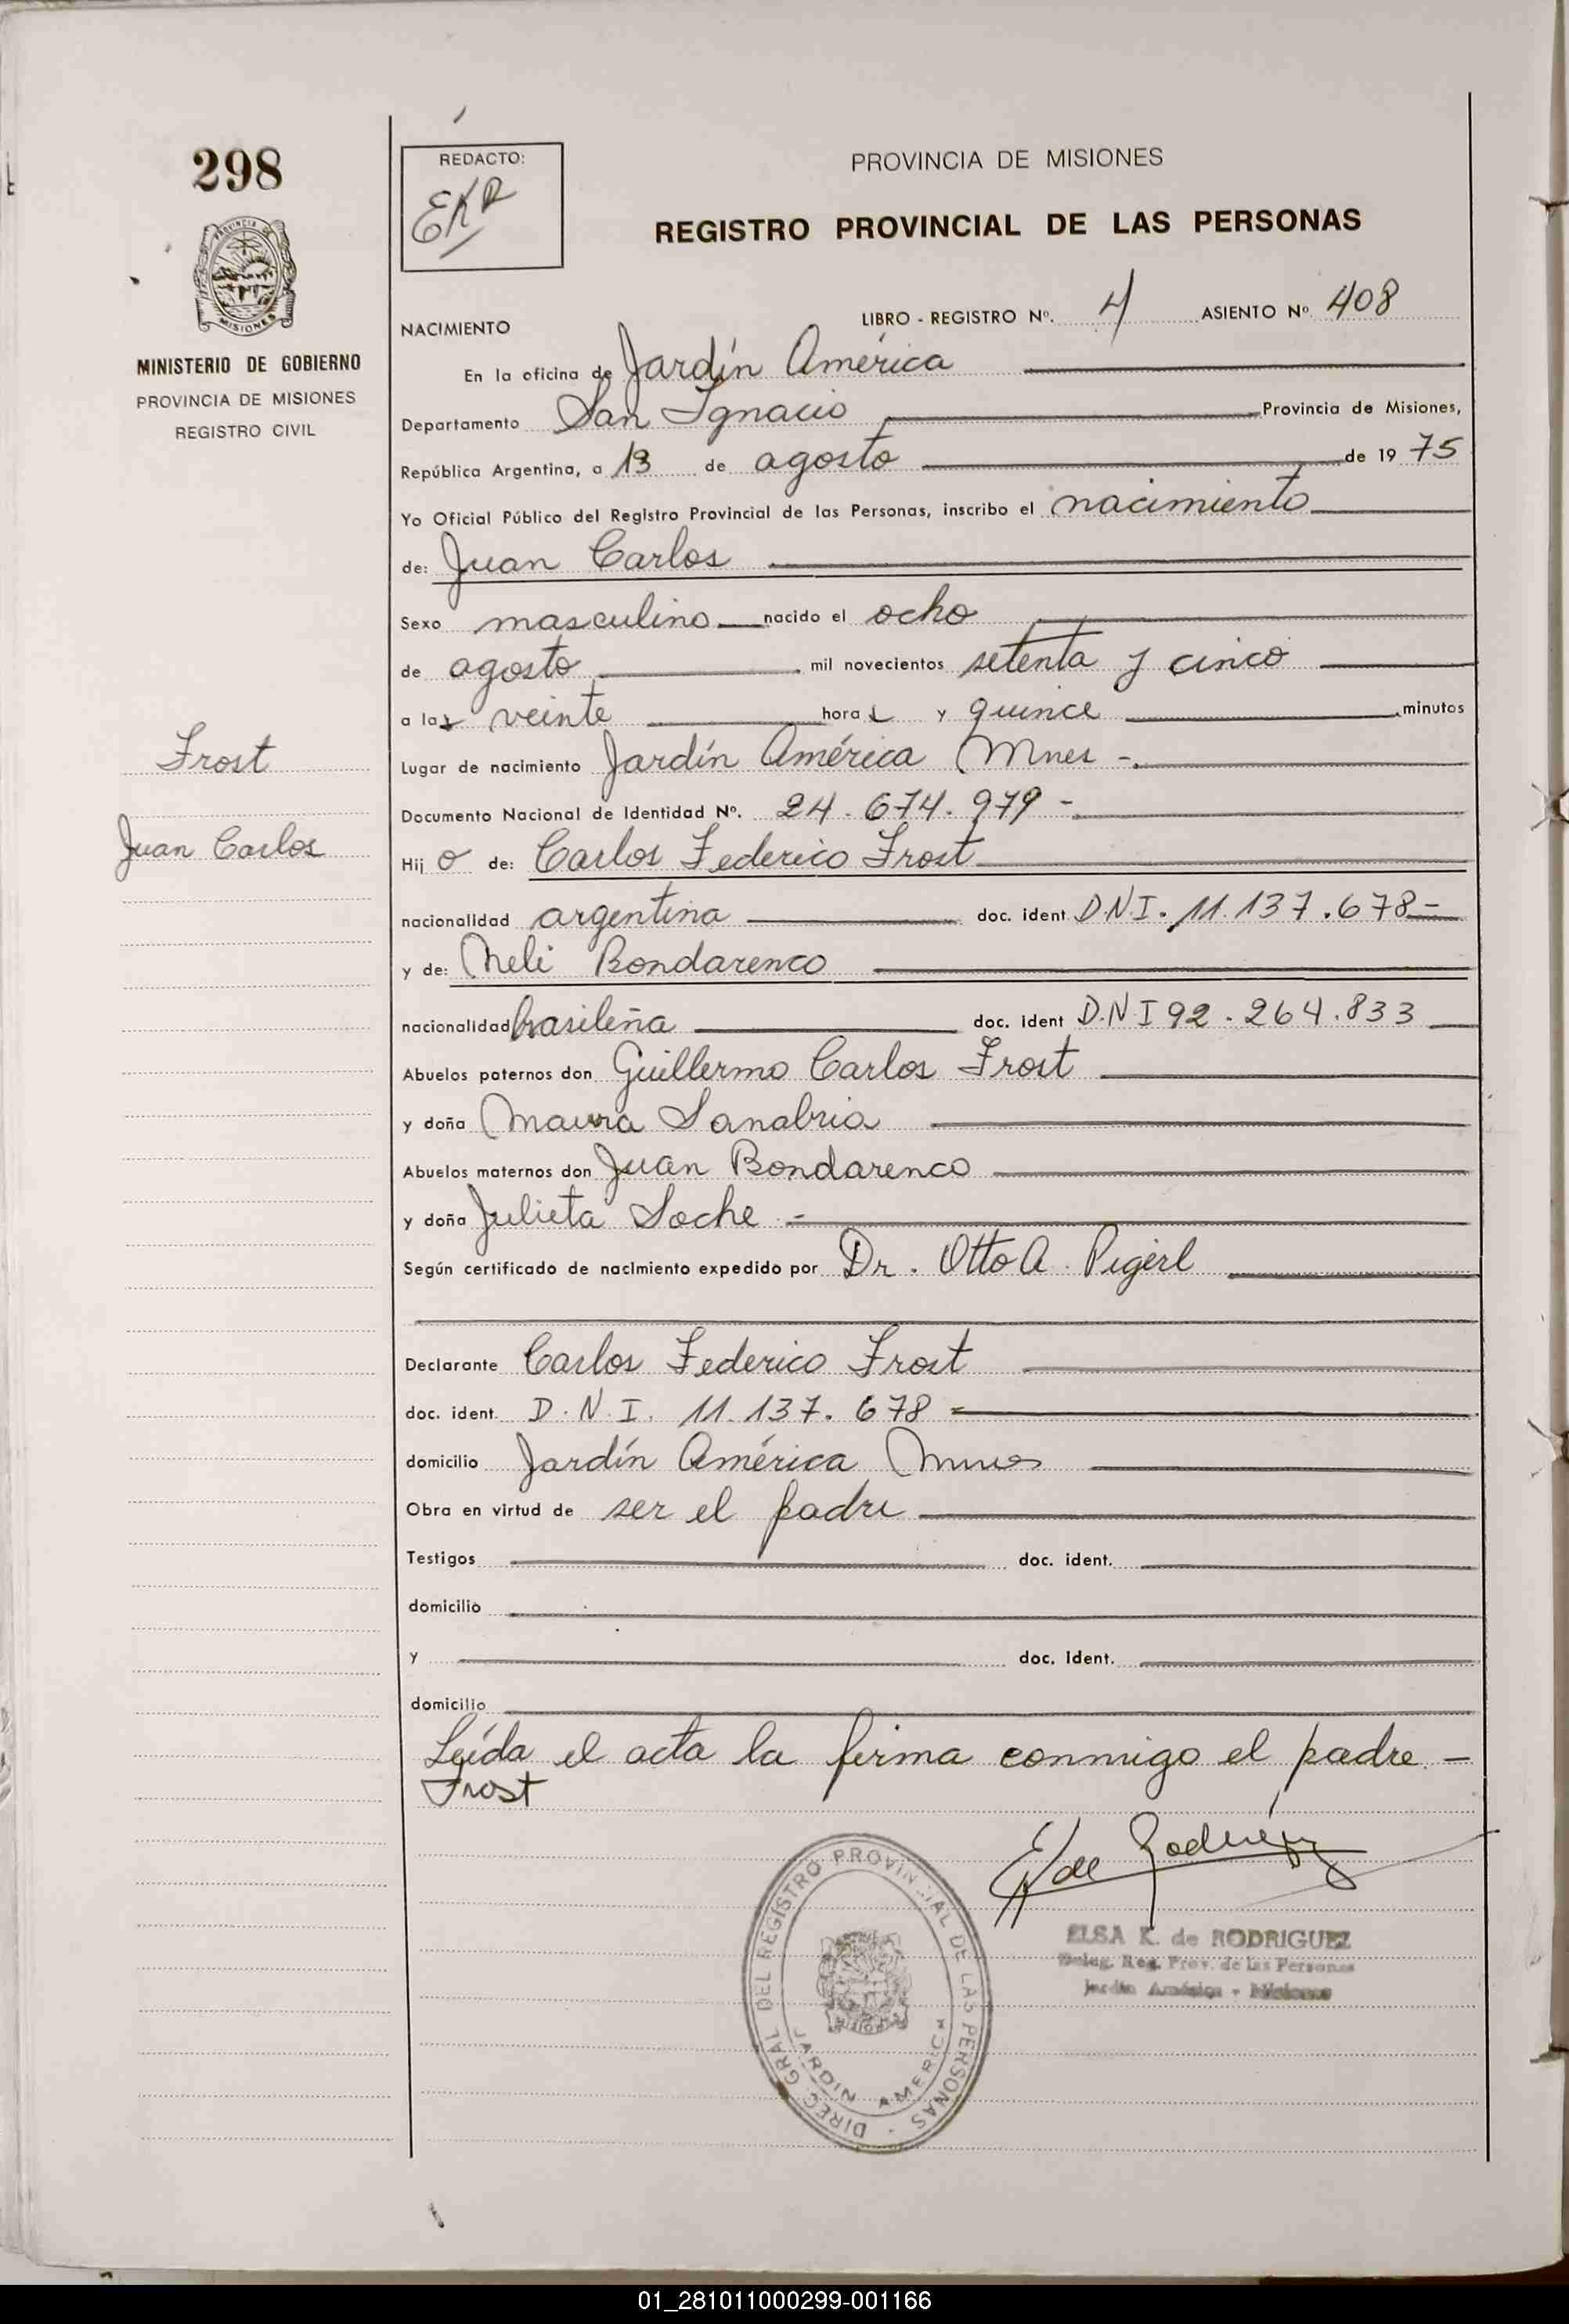 298
REDACTO:
EKR
PROVINCIA DE MISIONES
REGISTRO PROVINCIAL DE LAS PERSONAS
PROVINCIA DE
MISIONES
MINISTERIO DE GOBIERNO
PROVINCIA DE MISIONES
REGISTRO CIVIL
NACIMIENTO
LIBRO - REGISTRO Nº. 4 ASIENTO Nº 408
En la oficina de Jardín América
Departamento San Ignacio Provincia de Misiones,
República Argentina, a 13 de agosto de 1975
Yo Oficial Público del Registro Provincial de las Personas, inscribo el nacimiento
de: Juan Carlos
Sexo masculino nacido el ocho
de agosto mil novecientos setenta y cinco
a las veinte horas y quince minutos
Lugar de nacimiento Jardín América Mnes -.
Documento Nacional de Identidad Nº. 24.674.979 -
Hijo de: Carlos Federico Frost
nacionalidad argentina doc. ident D.N.I. 11.137.678 =
y de: Neli Bondarenco
nacionalidad brasileña doc. ident D.N.I 92.264.833
Abuelos paternos don Guillermo Carlos Frost
y doña Maura Sanabria
Abuelos maternos don Juan Bondarenco
y doña Julieta Soche -
Según certificado de nacimiento expedido por Dr. Otto A. Pigerl
Declarante Carlos Federico Frost
doc. ident. D.N.I. 11.137.678 =
domicilio Jardín América Mnes
Obra en virtud de ser el padre
Testigos doc. ident.
domicilio
y doc. ident.
domicilio
Leída el acta la firma conmigo el padre. -
Frost
E K de Rodriguez
DIREC. GRAL. DEL REGISTRO PROVINCIAL DE LAS PERSONAS
JARDIN AMERICA
ELSA K. de RODRIGUEZ
Deleg. Reg. Prov. de las Personas
Jardín América - Misiones
Frost
Juan Carlos
01_281011000299-001166